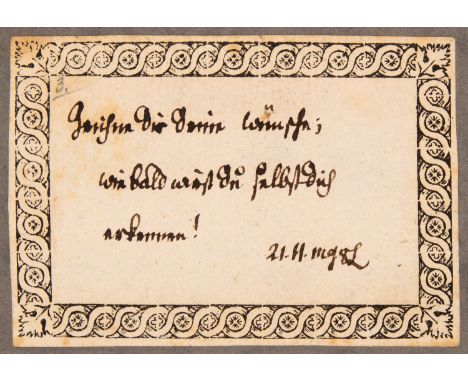 3.
Zeichne Dir Deine Wünsche;
wie bald wirst Du selbst Dich
erkennen!